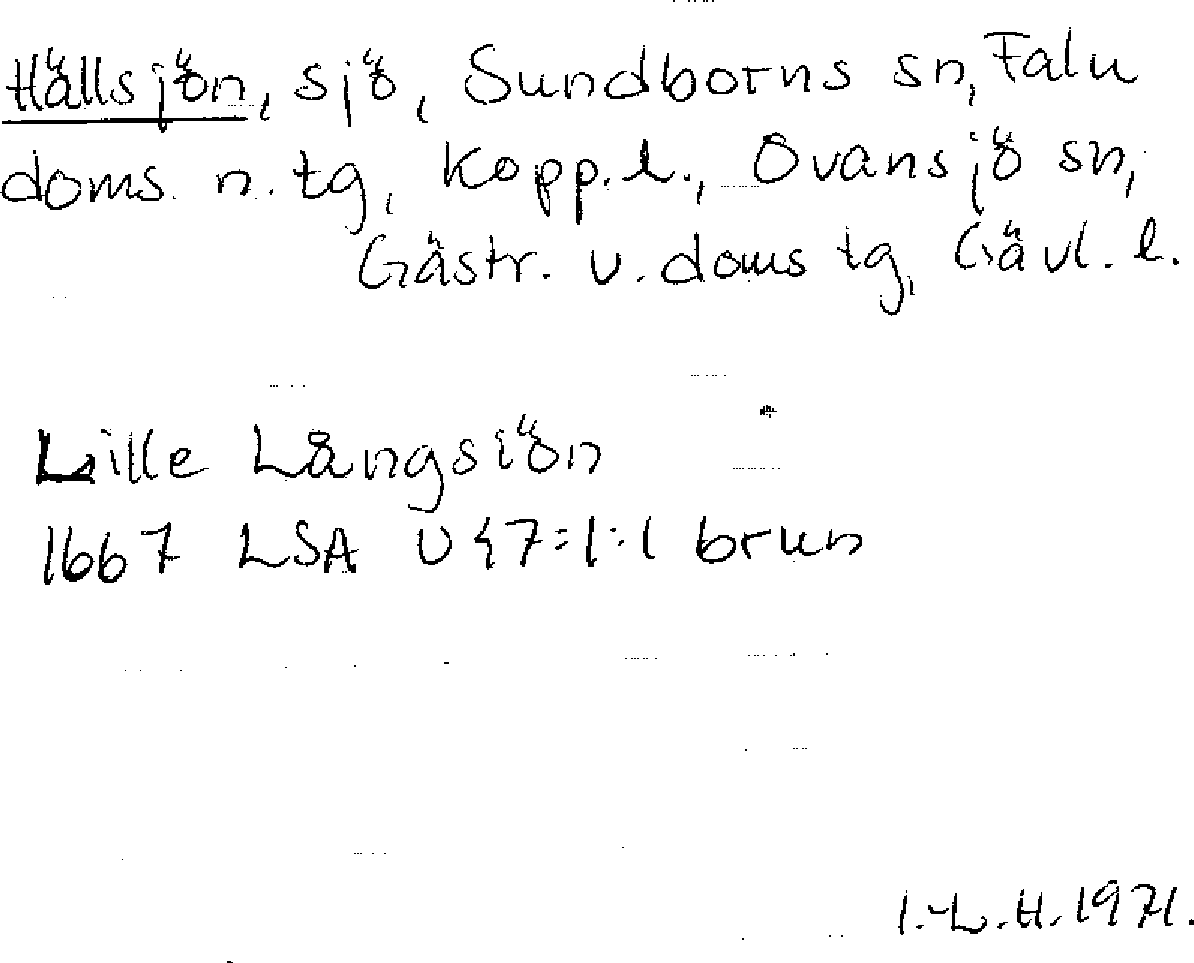 Hällsjön, sjö, Sundborns sn, Falu
doms. n. tg, Kopp. l., Ovansjö sn,
Gästr. v. doms tg, Gävl. l.
Lille Långsiön
1667 LSA U47=1:1 brun
I.-L. H. 1971.